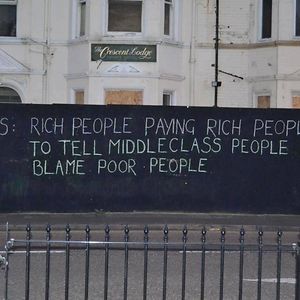 The Crescent Lodge
S: RICH PEOPLE PAYING RICH PEOPL
TO TELL MIDDLECLASS PEOPLE
BLAME POOR PEOPLE